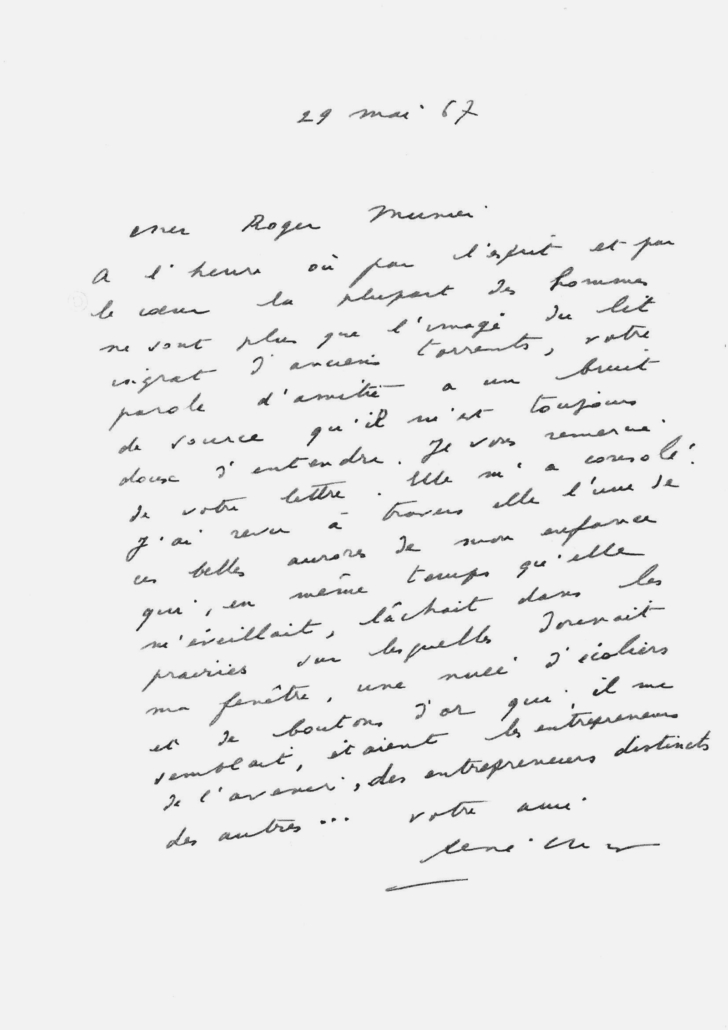 29 mai 67
cher Roger Munier
A l'heure où par l'esprit et par
le cœur la plupart des hommes
ne sont plus que l'image du lit
ingrat d'anciens torrents, votre
parole d'amitié a un bruit
de source qu'il m'est toujours
doux d'entendre. Je vous remercie
de votre lettre. Elle m'a consolé.
J'ai revu à travers elle l'une de
ces belles aurores de mon enfance
qui, en même temps qu'elle
m'éveillait, lâchait dans les
prairies sur lesquelles donnait
ma fenêtre, une nuée d'écoliers
et de boutons d'or qui, il me
semblait, étaient les entrepreneurs
de l'avenir, des entrepreneurs distincts
des autres... votre ami
René Char